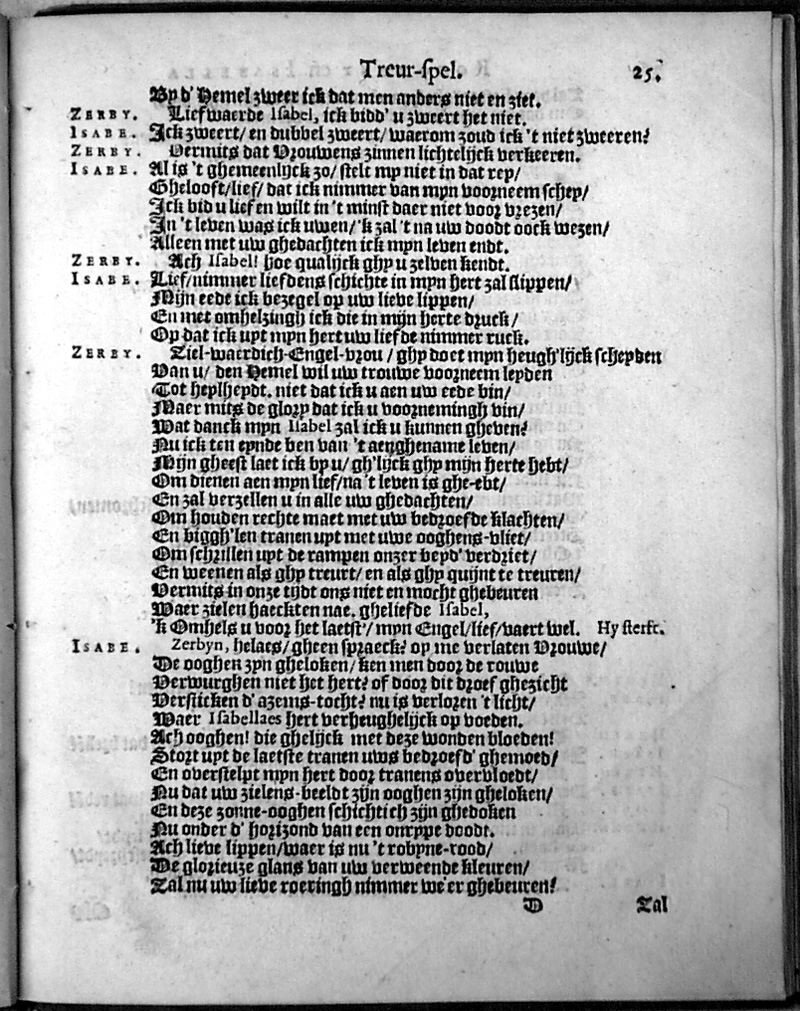 Treur-spel. 25.
By d' Hemel zweer ick dat men anders niet en ziet.
ZERBY. Lief waerde Isabel, ick bidd' u zweert het niet.
ISABE. Ick zweert/ en dubbel zweert/ waerom zoud ick 't niet zweeren?
ZERBY. Vermits dat Vrouwens zinnen lichtelijck verkeeren.
ISABE. Al is 't ghemeenlijck zo/ stelt my niet in dat rey/
Ghelooft/lief/ dat ick nimmer van mijn voorneem schey/
Ick bid u lief en wilt in 't minst daer niet voor vrezen/
In 't leven was ick uwen/ 'k zal 't na uw doodt oock wezen/
Alleen met uw ghedachten ick mijn leven endt.
ZERBY. Ach Isabel! hoe qualijck ghy u zelven kendt.
ISABE. Lief/nimmer liefdens schichte in mijn hert zal slippen/
Mijn eede ick bezegel op uw lieve lippen/
En met omhelzingh ick die in mijn herte druck/
Op dat ick uyt mijn hert uw liefde nimmer ruck.
ZERBY. Ziel-waerdich-Engel-vrou/ ghy doet mijn heugh'lijck scheyden
Van u/ den Hemel wil uw trouwe voorneem leyden
Tot heylheydt. niet dat ick u aen uw eede bin/
Maer mits de glory dat ick u voornemingh vin/
Wat danck mijn Isabel zal ick u kunnen gheven?
Nu ick ten eynde ben van 't aenghename leven/
Mijn gheest laet ick by u/ gh'lijck ghy mijn herte hebt/
Om dienen aen mijn lief/na 't leven is ghe-ebt/
En zal verzellen u in alle uw ghedachten/
Om houden rechte maet met uw bedroefde klachten/
En biggh'len tranen uyt met uwe ooghens-vliet/
Om schrillen uyt de rampen onzer beyd' verdriet/
En weenen als ghy treurt/ en als ghy quijnt te treuren/
Vermits in onze tijdt ons niet en mocht ghebeuren
Waer zielen haeckten nae. gheliefde Isabel,
'k Omhels u voor het laetst/ mijn Engel/lief/vaert wel. Hy sterft.
ISABE. Zerbyn, helaes/ gheen spraeck? op me verlaten Vrouwe/
De ooghen zyn gheloken/ ken men door de rouwe
Verwurghen niet het hert? of door dit droef ghezicht
Versticken d' azems-tocht? nu is verloren 't licht/
Waer Isabellaes hert verheughelijck op voeden.
Ach ooghen! die ghelijck met deze wonden bloeden!
Stort uyt de laetste tranen uws bedroefd' ghemoed/
En overstelpt mijn hert door tranens overvloedt/
Nu dat uw zielens-beeldt zijn ooghen zijn gheloken/
En deze zonne-ooghen schichtich zijn ghedoken
Nu onder d' horizond van een onrype doodt.
Ach lieve lippen/waer is nu 't robyne-rood/
De glorieuze glans van uw verweende kleuren/
Zal nu uw lieve roeringh nimmer we'er ghebeuren?
D Zal